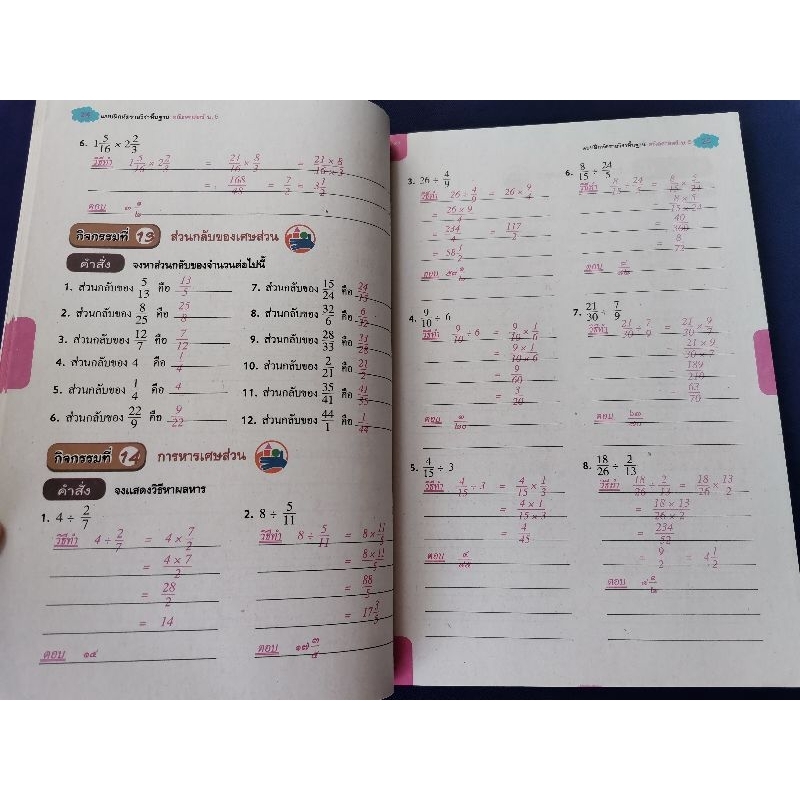 แบบฝึกหัดรายวิชาพื้นฐาน คณิตศาสตร์ ป.6
6. 1 5/16 × 2 2/3
วิธีทำ 1 5/16 × 2 2/3 = 21/16 × 8/3 = 21 × 8/16 × 3
= 168/48 = 7/2 = 3 1/2
ตอบ ๓ ๑/๒
กิจกรรมที่ 13 ส่วนกลับของเศษส่วน
คำสั่ง จงหาส่วนกลับของจำนวนต่อไปนี้
1. ส่วนกลับของ 5/13 คือ 13/5
2. ส่วนกลับของ 8/25 คือ 25/8
3. ส่วนกลับของ 12/7 คือ 7/12
4. ส่วนกลับของ 4 คือ 1/4
5. ส่วนกลับของ 1/4 คือ 4
6. ส่วนกลับของ 22/9 คือ 9/22
7. ส่วนกลับของ 15/24 คือ 24/15
8. ส่วนกลับของ 32/6 คือ 6/32
9. ส่วนกลับของ 28/33 คือ 33/28
10. ส่วนกลับของ 2/21 คือ 21/2
11. ส่วนกลับของ 35/41 คือ 41/35
12. ส่วนกลับของ 44/1 คือ 1/44
กิจกรรมที่ 14 การหารเศษส่วน
คำสั่ง จงแสดงวิธีหาผลหาร
1. 4 ÷ 2/7
วิธีทำ 4 ÷ 2/7 = 4 × 7/2
= 4 × 7/2
= 28/2
= 14
ตอบ ๑๔
2. 8 ÷ 5/11
วิธีทำ 8 ÷ 5/11 = 8 × 11/5
= 8 × 11/5
= 88/5
= 17 3/5
ตอบ ๑๗ ๓/๕
แบบฝึกหัดรายวิชาพื้นฐาน คณิตศาสตร์ ป.6
3. 26 ÷ 4/9
วิธีทำ 26 ÷ 4/9 = 26 × 9/4
= 26 × 9/4
= 234/4 = 117/2
= 58 1/2
ตอบ ๕๘ ๑/๒
4. 9/10 ÷ 6
วิธีทำ 9/10 ÷ 6 = 9/10 × 1/6
= 9 × 1/10 × 6
= 9/60
= 3/20
ตอบ
5. 4/15 ÷ 3
วิธีทำ 4/15 ÷ 3 = 4/15 × 1/3
= 4 × 1/15 × 3
= 4/45
ตอบ ๔/๔๕
6. 8/15 ÷ 24/5
วิธีทำ 8/15 ÷ 24/5 = 8/15 × 5/24
= 8 × 5/15 × 24
= 40/360
= 8/72
ตอบ
7. 21/30 ÷ 7/9
วิธีทำ 21/30 ÷ 7/9 = 21/30 × 9/7
21 × 9/30 × 7
189/210
63/70
ตอบ
8. 18/26 ÷ 2/13
วิธีทำ 18/26 ÷ 2/13 = 18/26 × 13/2
= 18 × 13/26 × 2
= 234/52
= 9/2 = 4 1/2
ตอบ ๔ ๑/๒